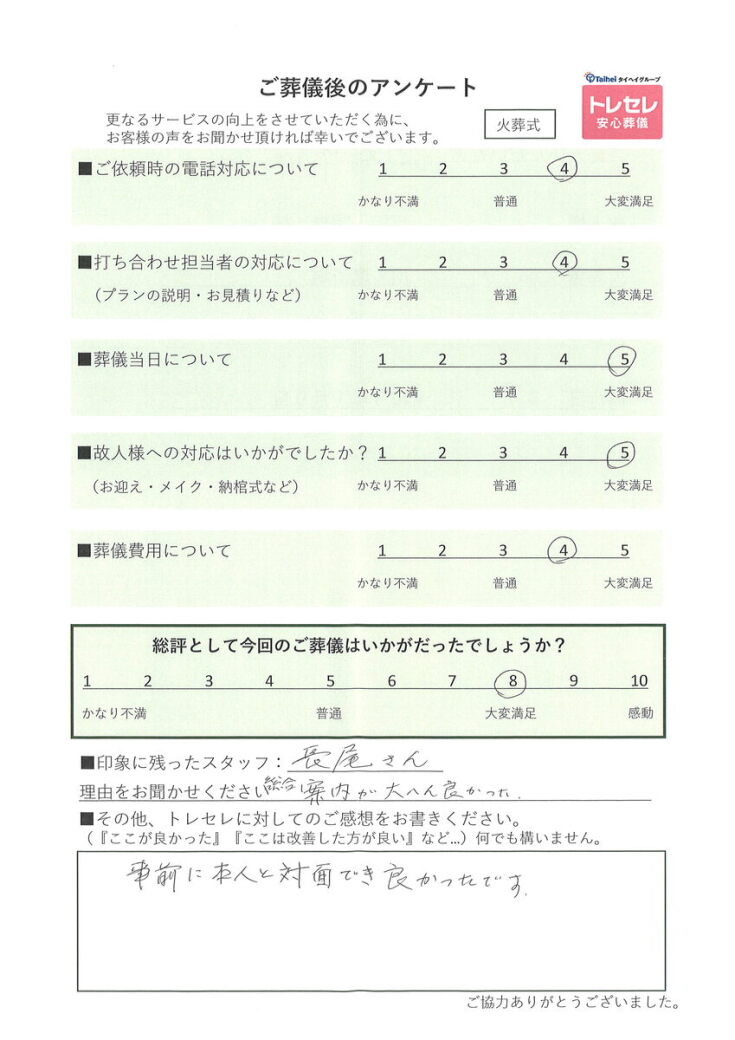 Taihei タイヘイグループ
トレセレ
安心葬儀
ご葬儀後のアンケート
更なるサービスの向上をさせていただく為に、
お客様の声をお聞かせ頂ければ幸いでございます。
火葬式
■ご依頼時の電話対応について 1 2 3 4 5
かなり不満 普通 大変満足
■打ち合わせ担当者の対応について 1 2 3 4 5
（プランの説明・お見積りなど） かなり不満 普通 大変満足
■葬儀当日について 1 2 3 4 5
かなり不満 普通 大変満足
■故人様への対応はいかがでしたか？ 1 2 3 4 5
（お迎え・メイク・納棺式など） かなり不満 普通 大変満足
■葬儀費用について 1 2 3 4 5
かなり不満 普通 大変満足
総評として今回のご葬儀はいかがだったでしょうか？
1 2 3 4 5 6 7 8 9 10
かなり不満 普通 大変満足 感動
■印象に残ったスタッフ：長尾さん
理由をお聞かせください 総合案内が大へん良かった.
■その他、トレセレに対してのご感想をお書きください。
（『ここが良かった』『ここは改善した方が良い』など…）何でも構いません。
事前に本人と対面でき良かったです.
ご協力ありがとうございました。